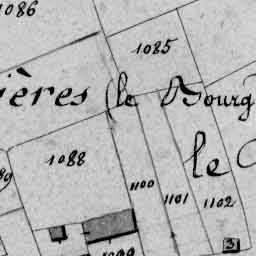 1086
1085
ières (le Bourg
le
1088
89
1100
1101
1102
1099
3